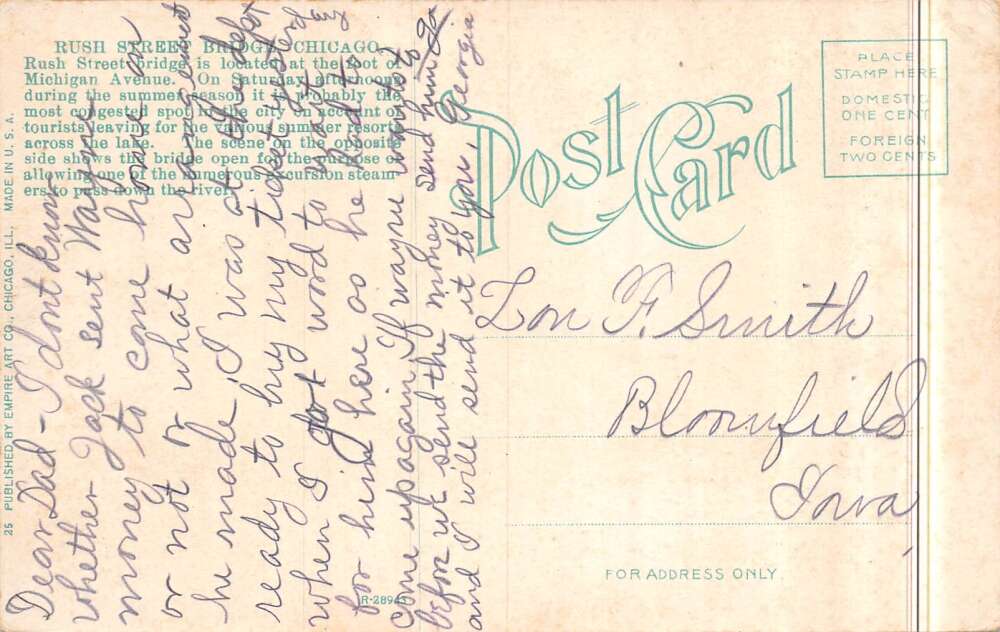 RUSH STREET BRIDGE, CHICAGO.
Rush Street bridge is located at the foot of
Michigan Avenue. On Saturday afternoons
during the summer season it is probably the
most congested spot in the city on account of
tourists leaving for the various summer resorts
across the lake. The scene on the opposite
side shows the bridge open for the purpose of
allowing one of the numerous excursion steam-
ers to pass down the river.
25 PUBLISHED BY EMPIRE ART CO., CHICAGO, ILL. MADE IN U. S. A.
R-28943
POST CARD
PLACE
STAMP HERE
DOMESTIC
ONE CENT
FOREIGN
TWO CENTS
Dear Dad - I dont know
whether Jack sent Wayne
money to come home on
or not or what arrangement
he made. I was at the depot
ready to buy my ticket yesterd
ay
when I got word to wait
for him here as he had to
come up again. If wayne whats to
before we send the money send him
and I will send it to you. Georgia
Lon F. Smith
Bloomfield
Iowa
FOR ADDRESS ONLY.